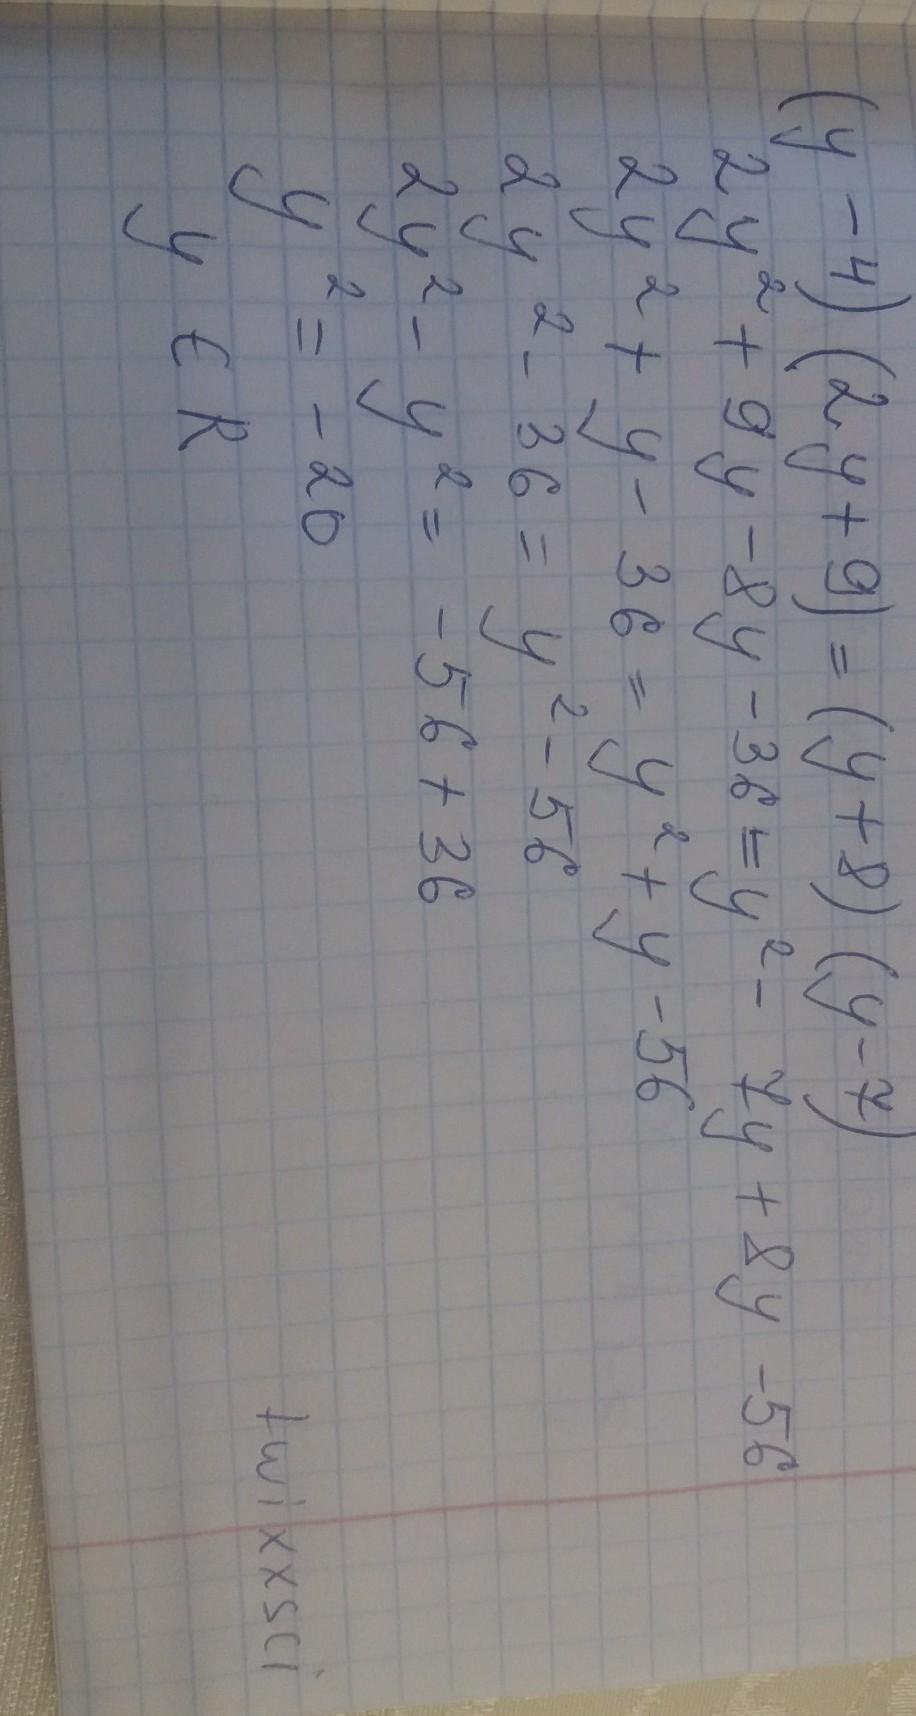 (y-4)(2y+9)=(y+8)(y-7)
2y²+9y-8y-36=y²-7y+8y-56
2y²+y-36=y²+y-56
2y²-36=y²-56
2y²-y²=-56+36
y²=-20
y ∈ R
twixxsci